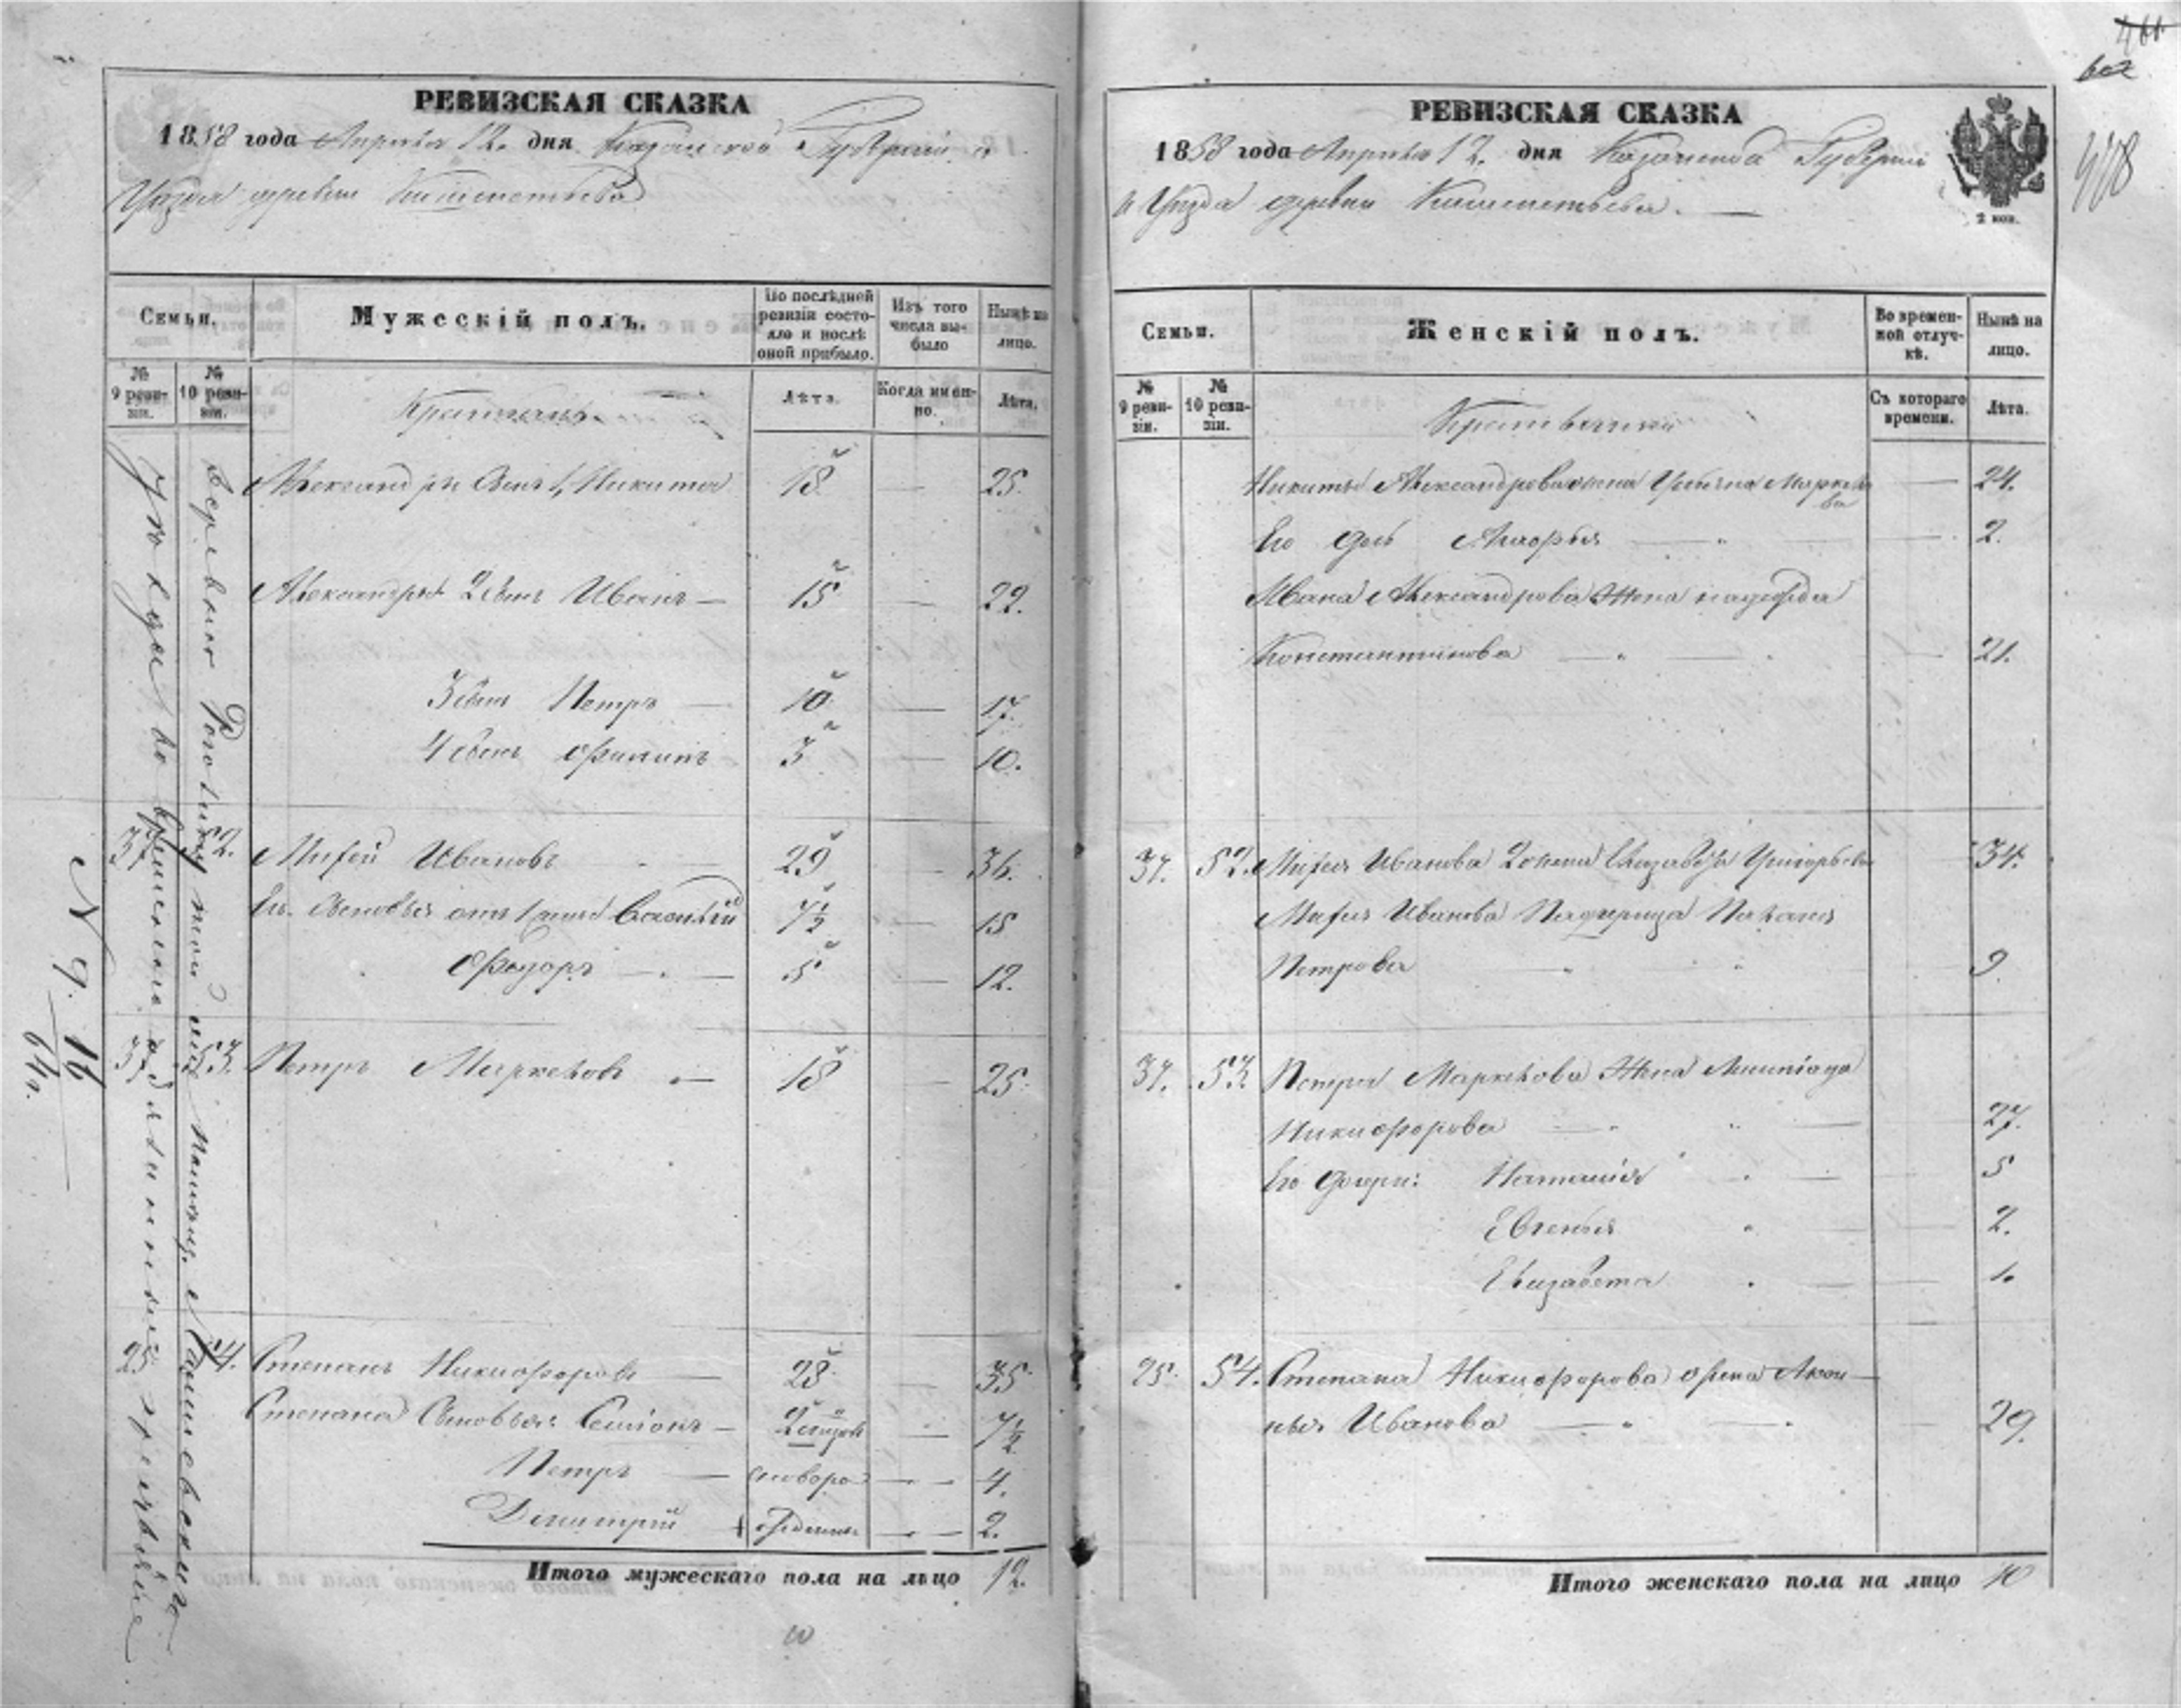 РЕВИЗСКАЯ СКАЗКА
1858 года Апреля 12. дня Казанской Губерніи и
Уезда деревни
Семьи.
Мужескій полъ.
По послѣдней ревизіи состояло и послѣ оной прибыло.
Изъ того числа выбыло
Нынѣ на лицо.
№ 9 ревизіи.
№ 10 ревизіи.
Крестьяне
Лѣта.
Когда именно.
Лѣта.
Александра сынъ 1, Никита 18 — 25.
Александра 2 сынъ Иванъ — 15 — 22.
3 сынъ Петръ — 10 — 17.
4 сынъ Филипъ 3 — 10.
37 52. Ивановъ 29 — 36.
Его сыновья отъ 1 жены Василій 7½ 15
Федоръ — 5 — 12.
37 53. Петръ Маркеловъ — 18 — 25.
25 54. Степанъ Никифоровъ — 28 — 35
Степана сыновья: Семіонъ — — 7½
Петръ — новоро — 4.
Дмитрій жденные — 2.
Итого мужескаго пола на лицо 12.
N 9. 16
64 г.
РЕВИЗСКАЯ СКАЗКА
1858 года Апреля 12. дня Казанской Губерніи
и Уезда деревни
2 коп.
478
Семьи.
Женскій полъ.
Во временной отлучкѣ.
Нынѣ на лицо.
№ 9 ревизіи.
№ 10 ревизіи.
Съ котораго времени.
Лѣта.
Никиты Александрова жена Устинья Маркелова — 24.
Его дочь — 2.
Ивана Александрова жена надежда
Константинова — 21.
37. 52. Иванова 2 жена Елизавета Григорьева 34.
Иванова Падчерица Пелагея
Петрова 9.
37. 53. Петра Маркелова жена
Никифорова — 27.
Его дочери: Наталія — 5
Евгенья 2.
Елизавета 1.
25. 54. Степана Никифорова жена
Иванова — 29.
Итого женскаго пола на лицо 10